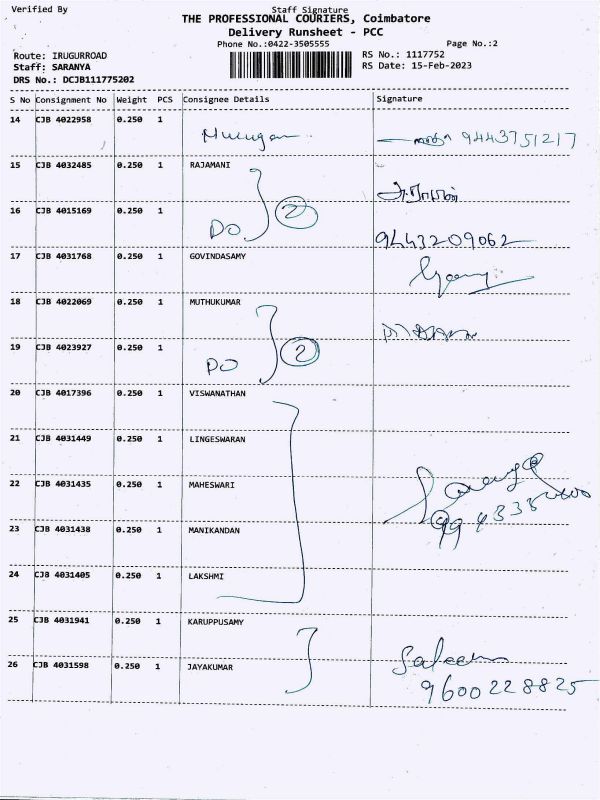 Verified By Staff Signature
THE PROFESSIONAL COURIERS, Coimbatore
Delivery Runsheet - PCC
Phone No.:0422-3505555 Page No.:2
Route: IRUGURROAD RS No.: 1117752
Staff: SARANYA RS Date: 15-Feb-2023
DRS No.: DCJB111775202
S No Consignment No Weight PCS Consignee Details Signature
14 CJB 4022958 0.250 1 Murugan 9443751217
15 CJB 4032485 0.250 1 RAJAMANI
16 CJB 4015169 0.250 1 DO 2
9443209062
17 CJB 4031768 0.250 1 GOVINDASAMY
18 CJB 4022069 0.250 1 MUTHUKUMAR
19 CJB 4023927 0.250 1 DO 2
20 CJB 4017396 0.250 1 VISWANATHAN
21 CJB 4031449 0.250 1 LINGESWARAN
22 CJB 4031435 0.250 1 MAHESWARI
23 CJB 4031438 0.250 1 MANIKANDAN
24 CJB 4031405 0.250 1 LAKSHMI
25 CJB 4031941 0.250 1 KARUPPUSAMY
26 CJB 4031598 0.250 1 JAYAKUMAR Saleem
9600228825